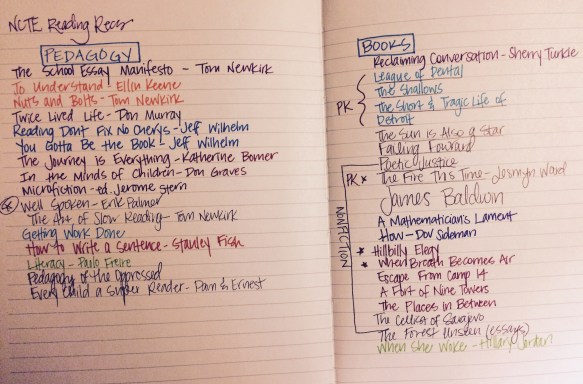 NCTE Reading Recs
PEDAGOGY
The School Essay Manifesto - Tom Newkirk
To Understand - Ellin Keene
Nuts and Bolts - Tom Newkirk
Twice Lived Life - Don Murray
Reading Don't Fix No Chevys - Jeff Wilhelm
You Gotta Be the Book - Jeff Wilhelm
The Journey is Everything - Katherine Bomer
In the Minds of Children - Don Graves
Microfiction - ed. Jerome Stern
Well Spoken - Erik Palmer
The Art of Slow Reading - Tom Newkirk
Getting Work Done
How to Write a Sentence - Stanley Fish
Literacy - Paulo Freire
Pedagogy of the Oppressed
Every Child a Super Reader - Pam & Ernest
BOOKS
Reclaiming Conversation - Sherry Turkle
League of Denial
The Shallows
PK
The Short & Tragic Life of
Detroit
The Sun is Also a Star
Falling Forward
Poetic Justice
PK * The Fire This Time - Jesmyn Ward
James Baldwin
NONFICTION
A Mathematician's Lament
How - Dov Sideman
* Hillbilly Elegy
* When Breath Becomes Air
Escape From Camp 14
A Fort of Nine Towers
The Places in Between
The Cellist of Sarajevo
The Forest Unseen (essays)
When She Woke - Hillary Jordan